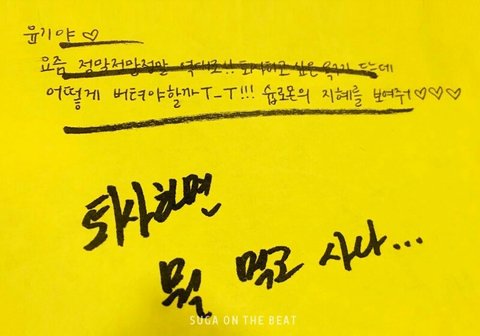 윤기야 ♡
요즘 정말정말정말 역대로!! 퇴사하고 싶은 욕구가 드는데
어떻게 버텨야할까T_T!!! 슙로몬의 지혜를 보여줘♡♡♡
퇴사하면
뭘 먹고 사나...
SUGA ON THE BEAT